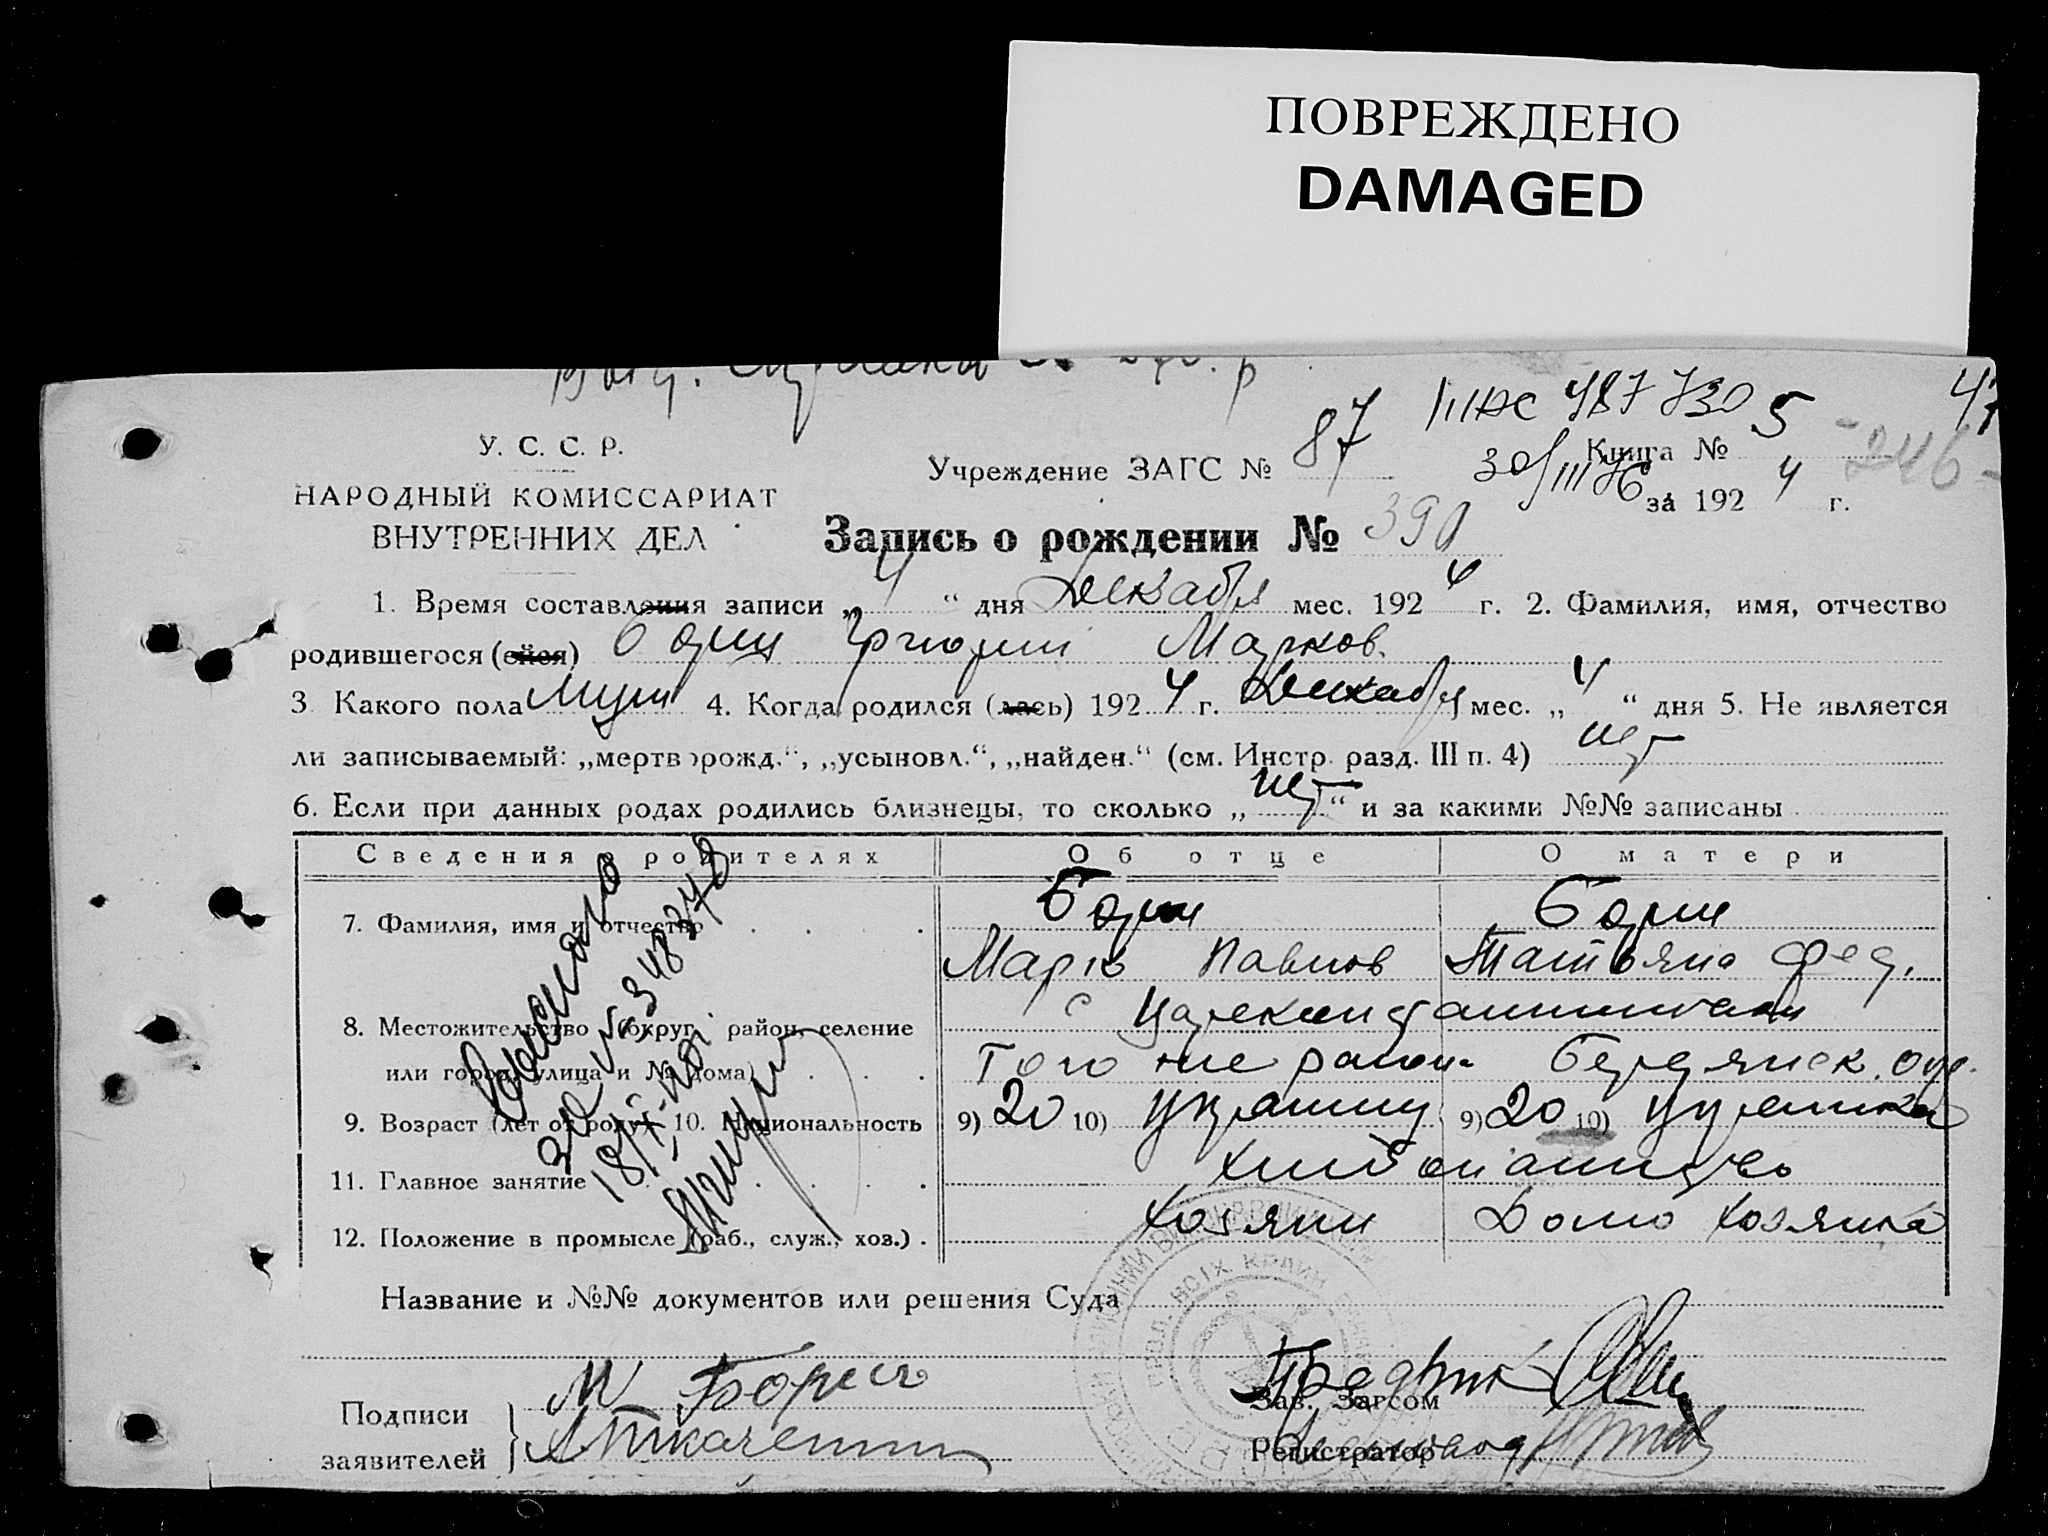 ПОВРЕЖДЕНО
DAMAGED
У. С. С. Р.
НАРОДНЫЙ КОМИССАРИАТ
ВНУТРЕННИХ ДЕЛ
487730
Учреждение ЗАГС № 87
Книга № 5
246
30/III 76
за 1924 г.
Запись о рождении № 390
1. Время составления записи „4“ дня Декабря мес. 1924 г. 2. Фамилия, имя, отчество
родившегося (ейся) Борщ Григорий Марков.
3. Какого пола Муж 4. Когда родился (лась) 1924 г. Декабря мес. „4“ дня 5. Не является
ли записываемый: „мертворожд.“, „усыновл.“, „найден.“ (см. Инстр. разд. III п. 4) нет
6. Если при данных родах родились близнецы, то сколько „нет“ и за какими №№ записаны
Сведения о родителях Об отце О матери
7. Фамилия, имя и отчество Борщ Борщ
Марко Павлов Татьяна Фед.
8. Местожительство (округ, район, селение
или город, улица и № дома) Того же района Бердянск. окр.
9. Возраст (лет от роду) 10. Национальность 9) 20 10) украинец 9) 20 10) украинка
11. Главное занятие хлебопашество
12. Положение в промысле (раб., служ., хоз.) хозяин Домохозяйка
Выслано
348378
Название и №№ документов или решения Суда
Подписи
заявителей
М Борщ
Ткаченко
Зав. Загсом
Регистратор